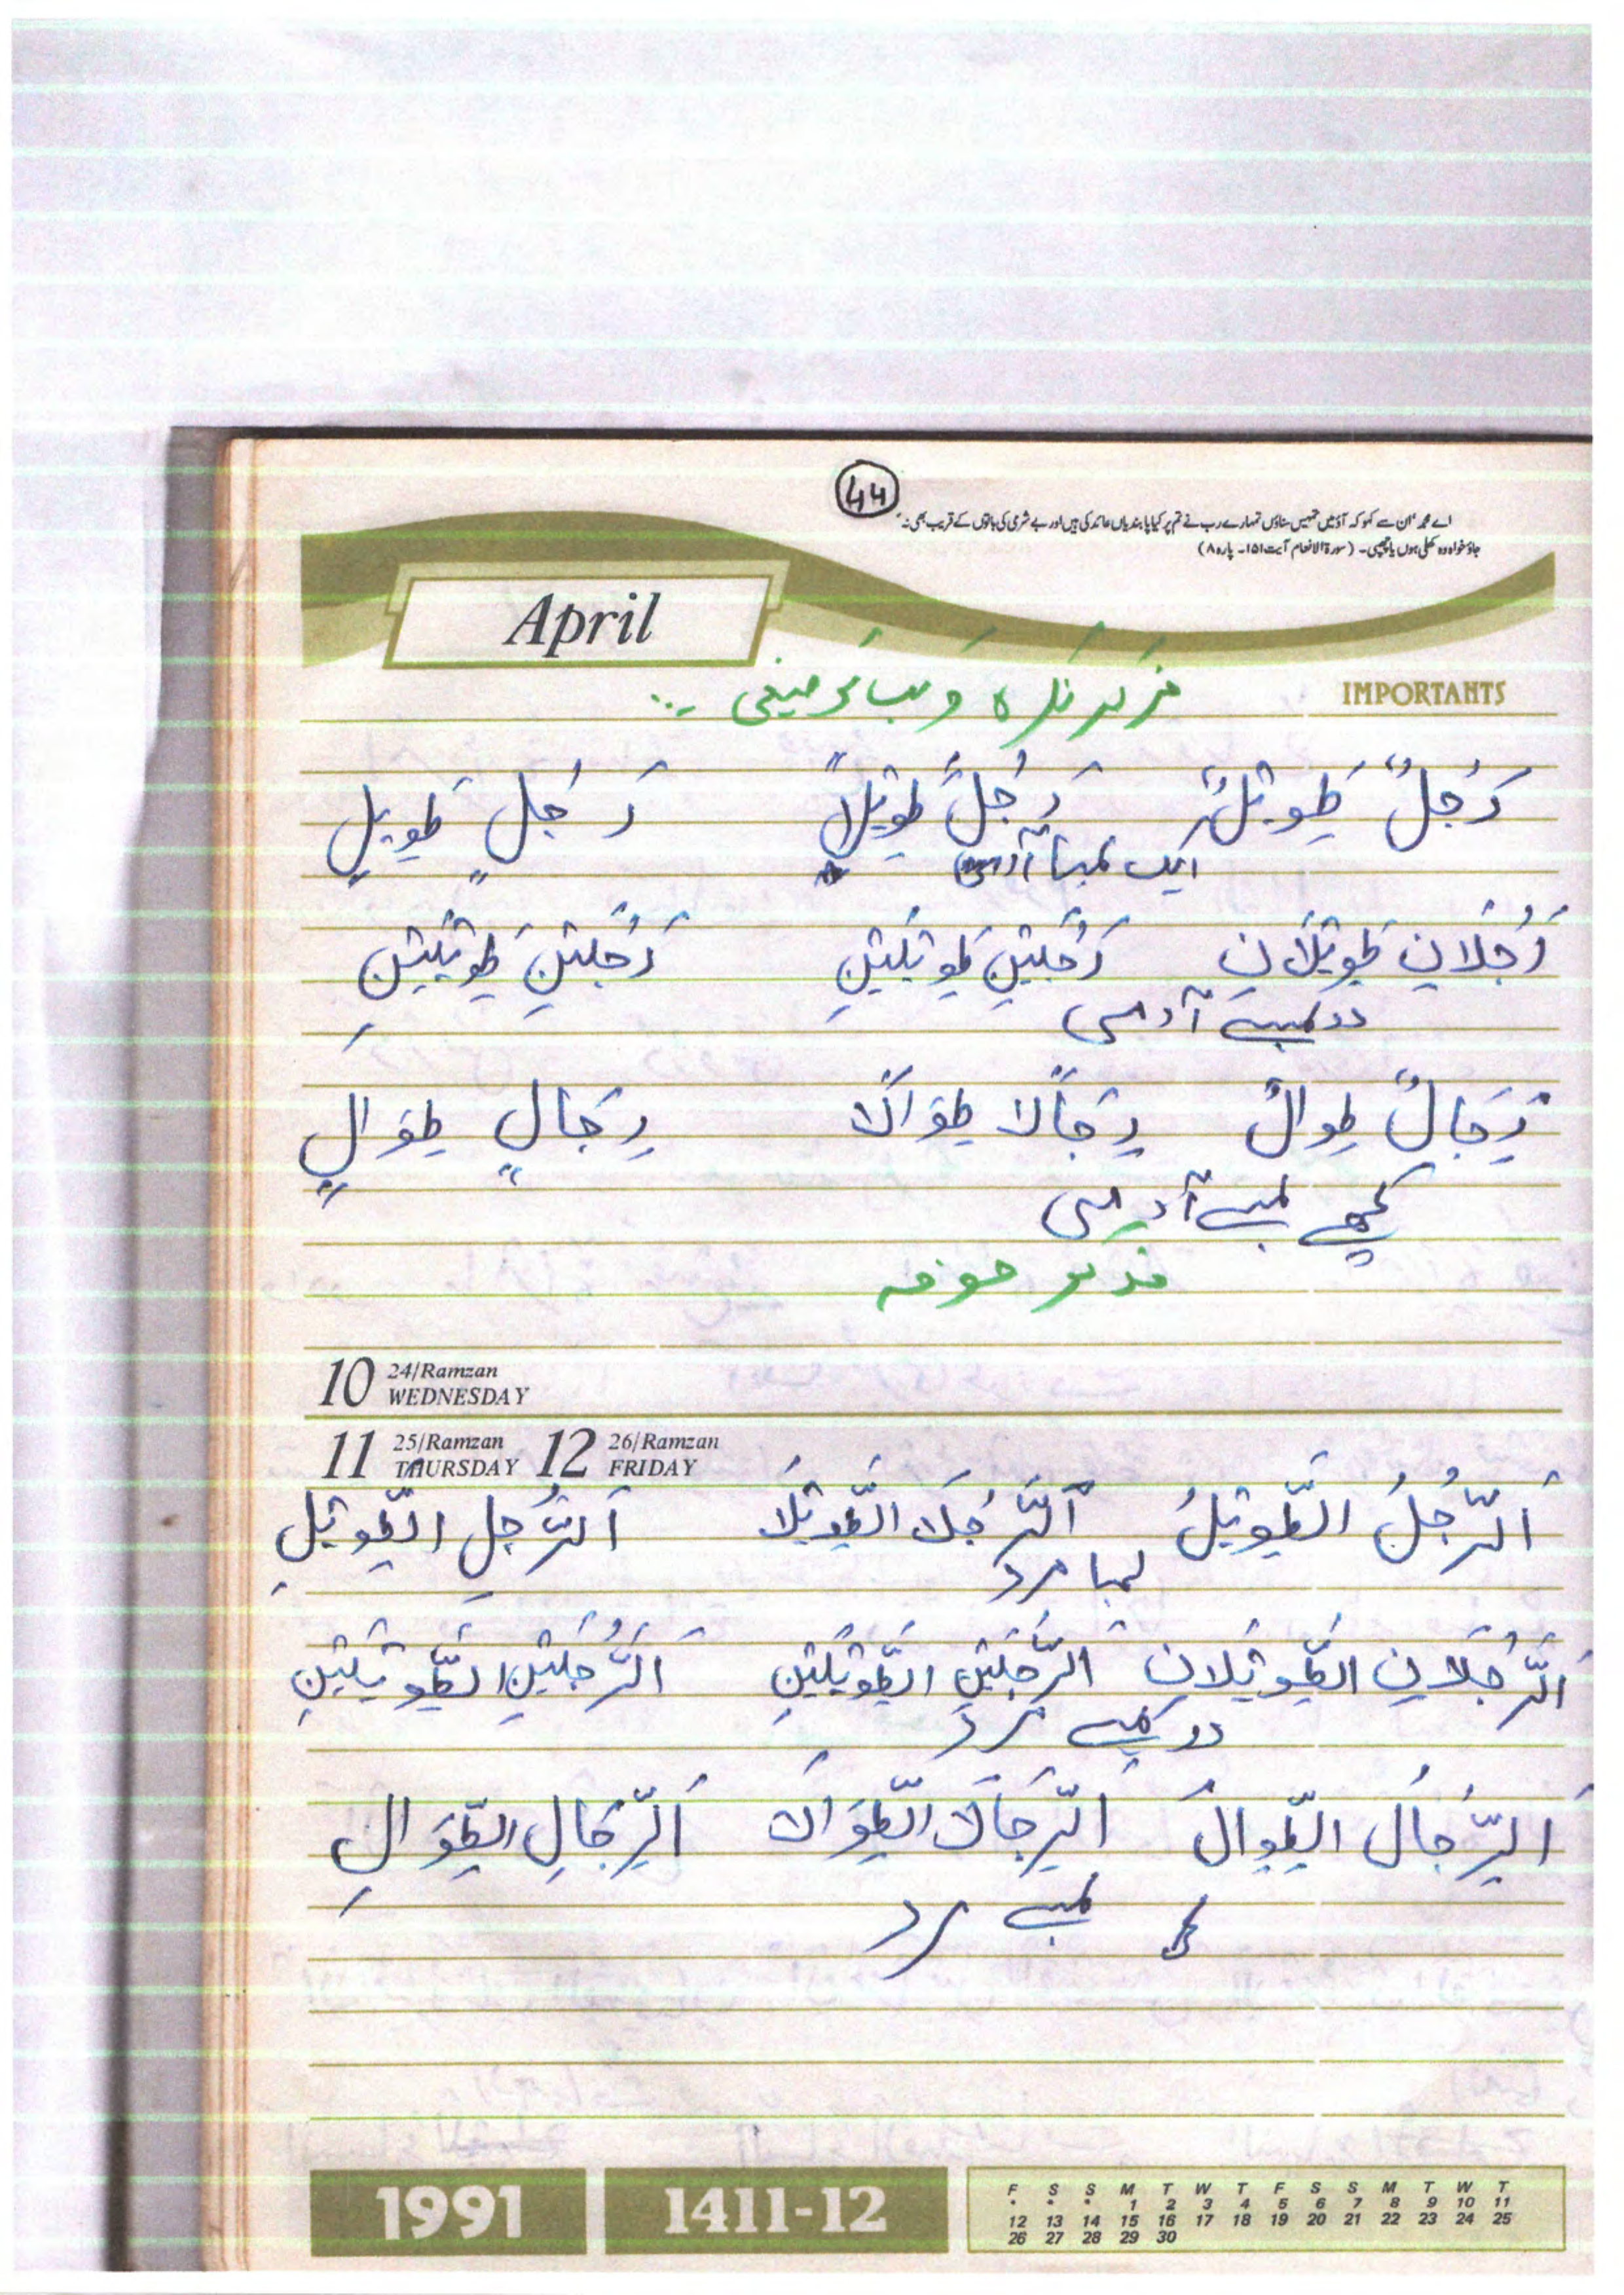 44
اے محمدؐ ان سے کہو کہ آؤ میں تمہیں سناؤں تمہارے رب نے تم پر کیا پابندیاں عائد کی ہیں اور بے شرمی کی باتوں کے قریب بھی نہ
جاؤ خواہ وہ کھلی ہوں یا چھپی۔ (سورۃ الانعام آیت ۱۵۱۔ پارہ ۸)
April
IMPORTANTS
نکرہ
رَجُلٌ طَوِیْلٌ رَجُلًا طَوِیْلًا رَجُلٍ طَوِیلٍ
ایک لمبا آدمی
رَجُلَانِ طَوِیْلَانِ رَجُلَیْنِ طَوِیْلَیْنِ رَجُلَیْنِ طَوِیْلَیْنِ
دو لمبے آدمی
رِجَالٌ طِوالٌ رِجَالًا طِوَالًا رِجَالٍ طِوَالٍ
کچھ لمبے آدمی
10 24/Ramzan WEDNESDAY
11 25/Ramzan THURSDAY 12 26/Ramzan FRIDAY
اَلرَّجُلُ الطَّوِیْلُ اَلرَّجُلَا الطَّوِیْلَا اَلرَّجُلِ الطَّوِیْلِ
لمبا مرد
اَلرَّجُلَانِ الطَّوِیْلَانِ الرَّجُلَیْنِ الطَّوِیْلَیْنِ اَلرَّجُلَیْنِ الطَّوِیْلَیْنِ
دو لمبے مرد
اَلرِّجَالُ الطِّوالُ اَلرِّجَالَا الطِّوَالَا اَلرِّجَالِ الطِّوَالِ
لمبے مرد
1991 1411-12
F S S M T W T F S S M T W T
* * * 1 2 3 4 5 6 7 8 9 10 11
12 13 14 15 16 17 18 19 20 21 22 23 24 25
26 27 28 29 30